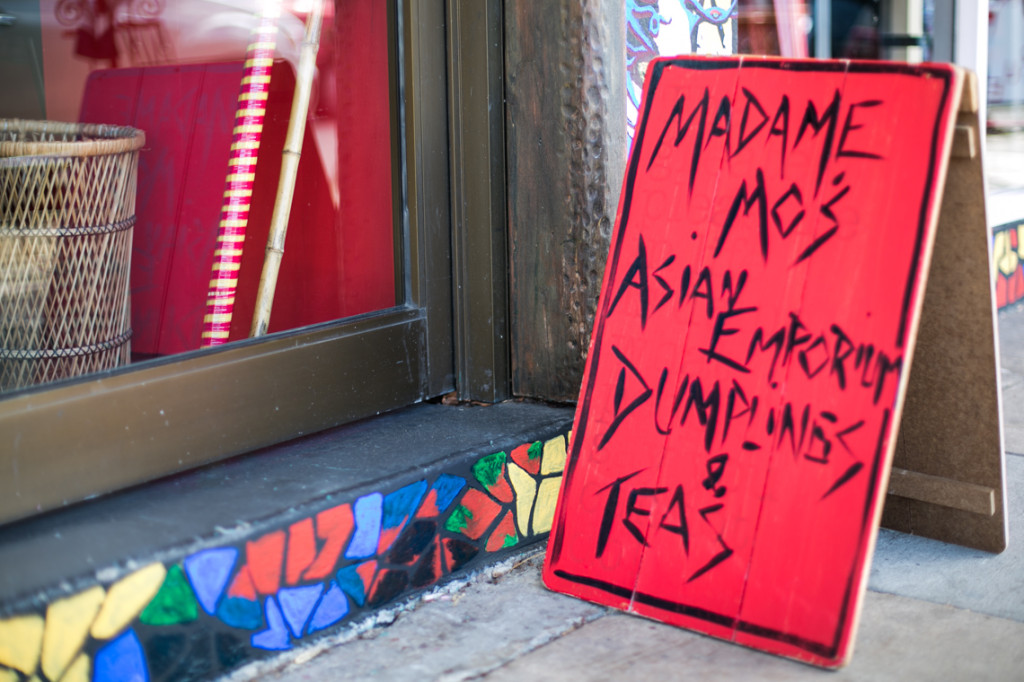 MADAME
MO'S
ASIAN
EMPORIUM
DUMPLINGS
&
TEAS